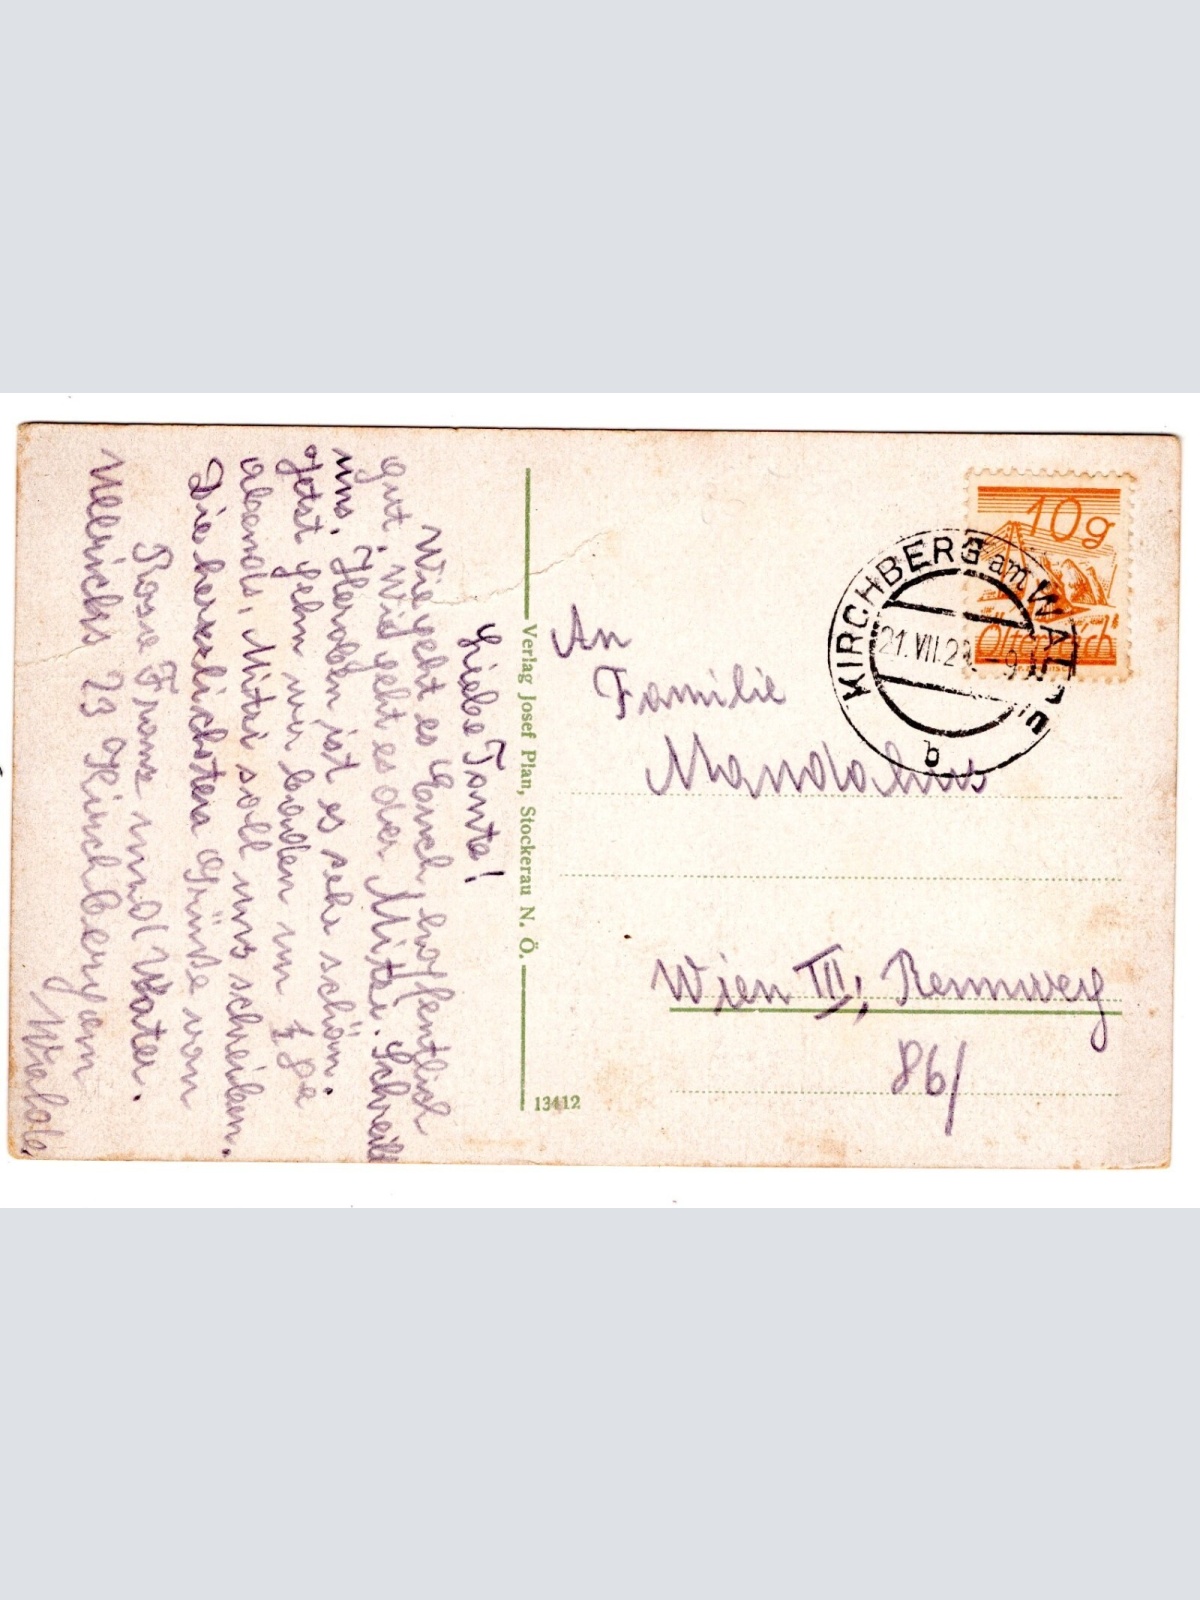 Liebe Tante!
Wie geht es Euch, hoffentlich
gut. Wie geht es der Mitzi. Schreibt
uns. Herden ist es sehr schön.
Jetzt gehn wir baden um ½ 8
abends. Mitzi soll uns schreiben.
Die herzlichsten Grüße von
Rosa Franz und Vater.
Ullrichs 23 Kirchberg am
Walde
Verlag Josef Plan, Stockerau N. Ö.
13412
10g
Österreich
KIRCHBERG am WALDE
21.VII.2
b
An
Familie
Wien III, Rennweg
86/